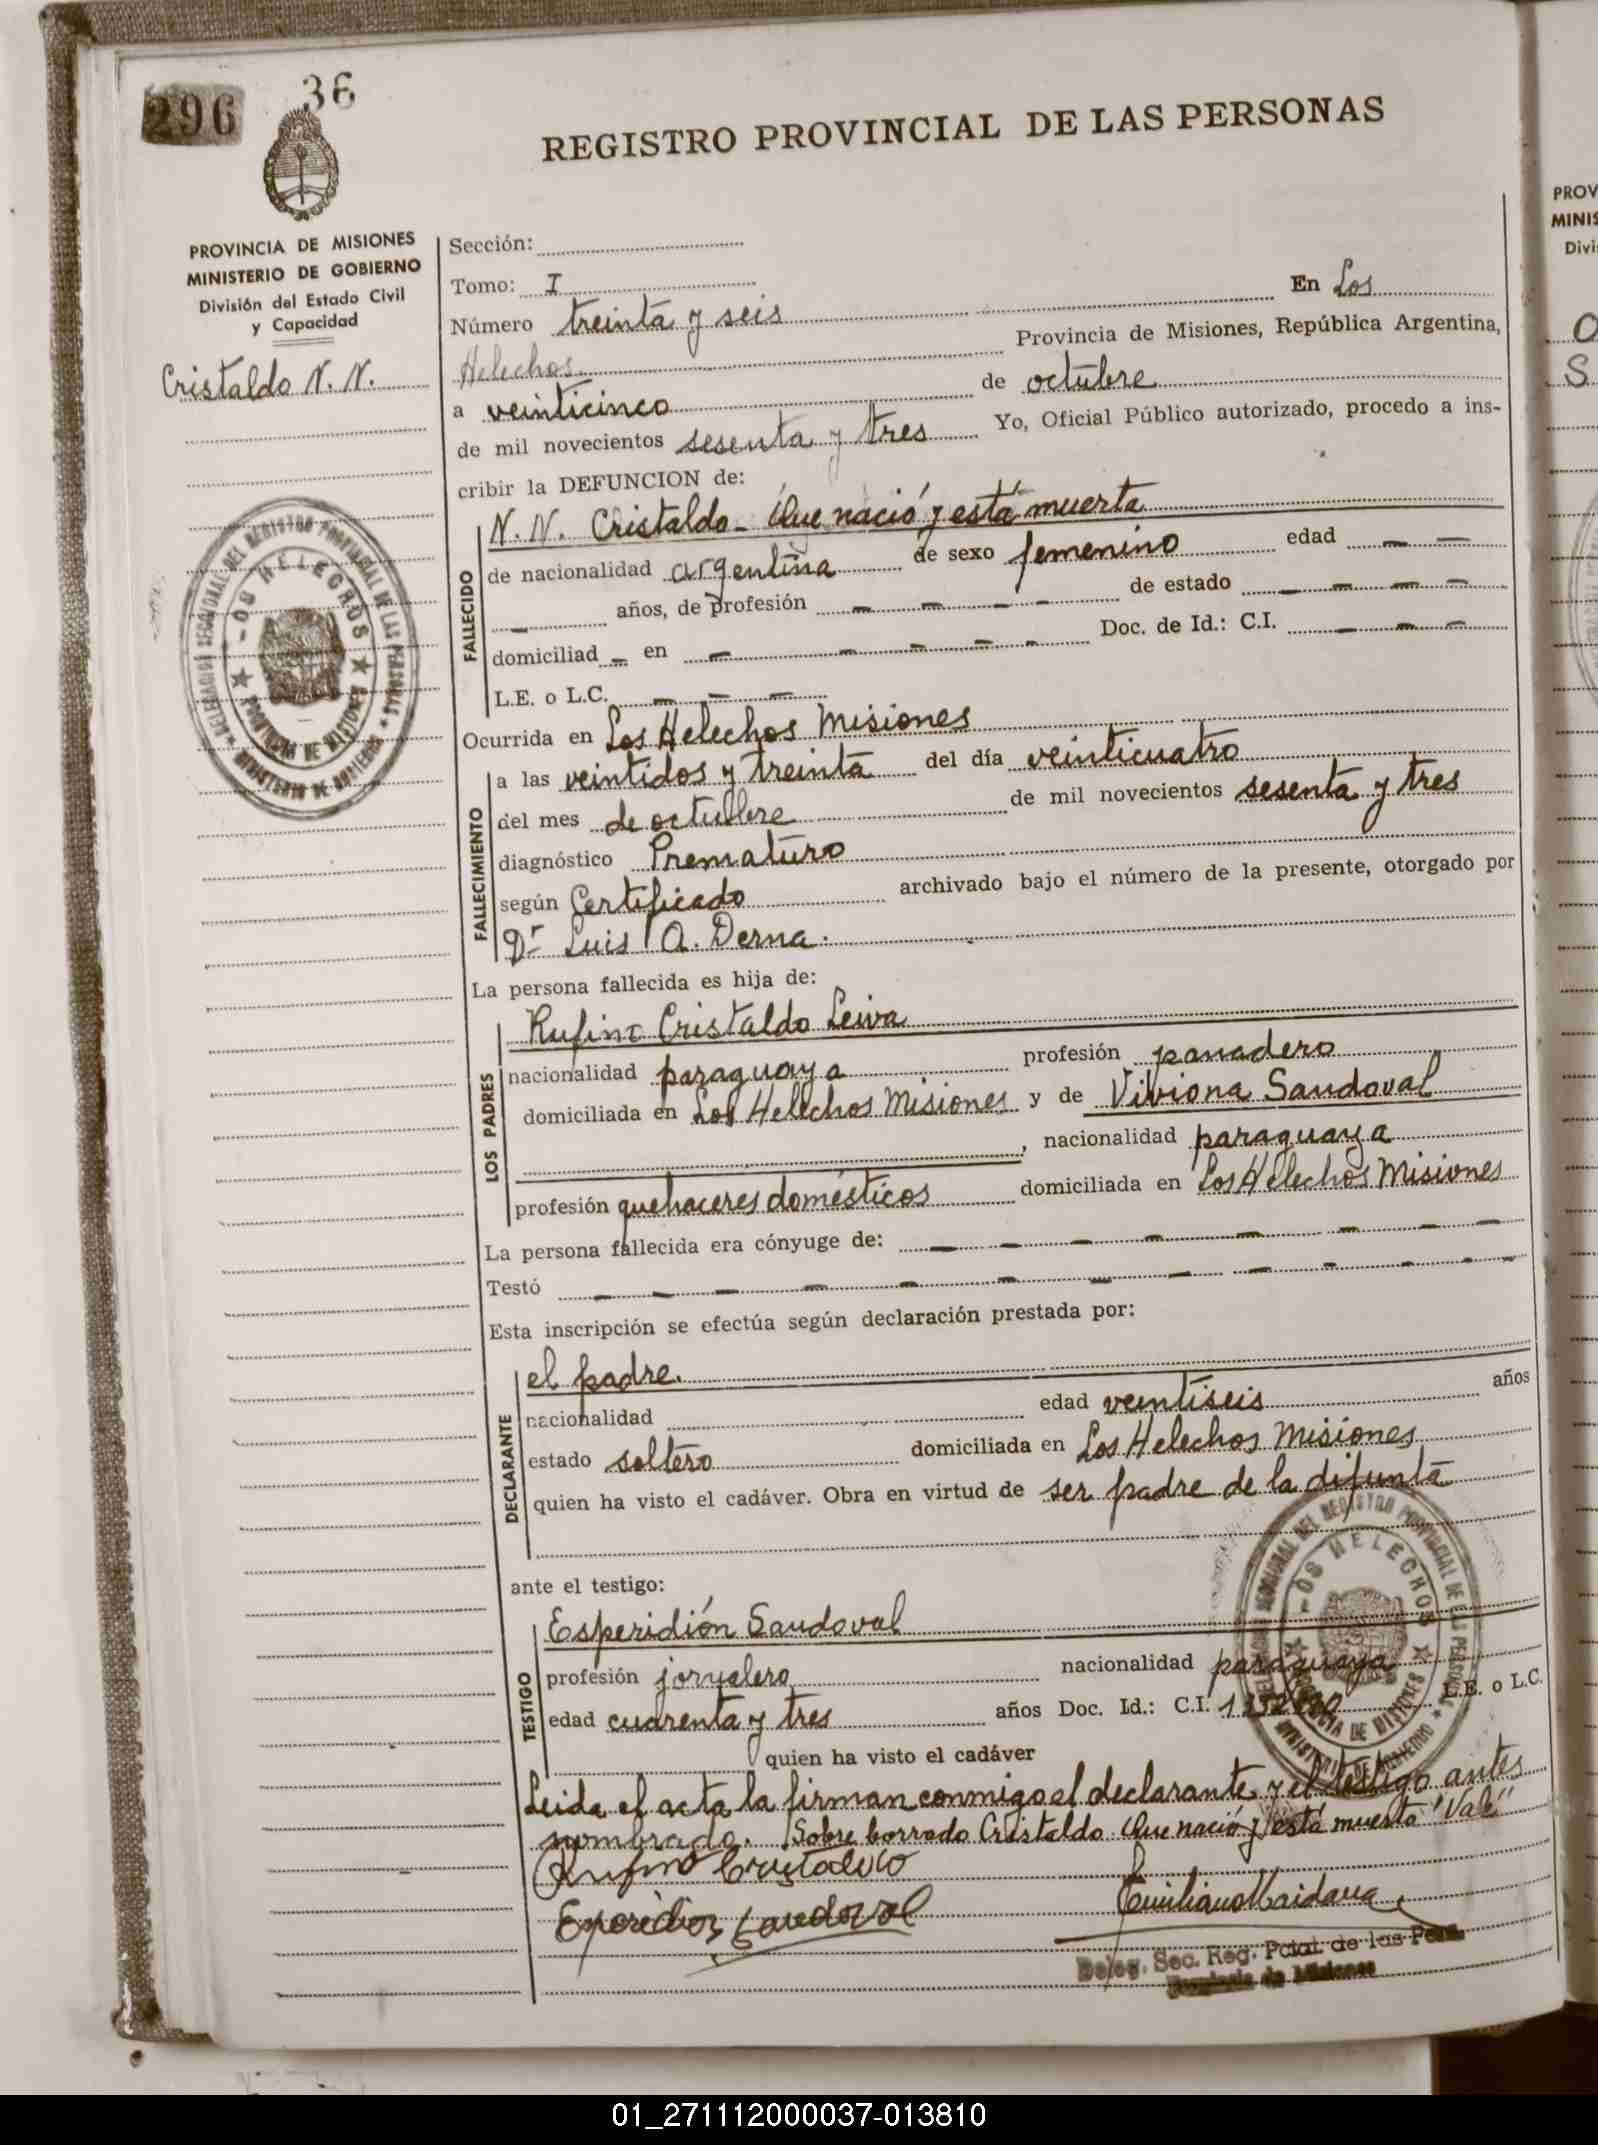 296
36
REGISTRO PROVINCIAL DE LAS PERSONAS
PROVINCIA DE MISIONES
MINISTERIO DE GOBIERNO
División del Estado Civil
y Capacidad
Cristaldo N. N.
Sección:
Tomo: I
En Los
Número treinta y seis
Helechos Provincia de Misiones, República Argentina,
a veinticinco de octubre
de mil novecientos sesenta y tres Yo, Oficial Público autorizado, procedo a ins-
cribir la DEFUNCION de:
FALLECIDO
N. N. Cristaldo - Que nació y está muerta
de nacionalidad argentina de sexo femenino edad — —
— años, de profesión — — — — de estado — — — —
domiciliad — en — — — — — Doc. de Id.: C.I. — — —
L.E. o L.C. — — —
Ocurrida en Los Helechos Misiones
FALLECIMIENTO
a las veintidos y treinta del día veinticuatro
del mes de octubre de mil novecientos sesenta y tres
diagnóstico Prematuro
según Certificado archivado bajo el número de la presente, otorgado por
Dr Luis A. Derna.
La persona fallecida es hija de:
LOS PADRES
Rufino Cristaldo Leiva
nacionalidad paraguaya profesión panadero
domiciliada en Los Helechos Misiones y de Viviona Sandoval
, nacionalidad paraguaya
profesión quehaceres domésticos domiciliada en Los Helechos Misiones
La persona fallecida era cónyuge de: — — — — — — — —
Testó — — — — — — — — — — — —
Esta inscripción se efectúa según declaración prestada por:
DECLARANTE
el padre.
nacionalidad edad veintiseis años
estado soltero domiciliada en Los Helechos Misiones
quien ha visto el cadáver. Obra en virtud de ser padre de la difunta
ante el testigo:
TESTIGO
Esperidión Sandoval
profesión jornalero nacionalidad paraguaya
edad cuarenta y tres años Doc. Id.: C.I. L.E. o L.C.
quien ha visto el cadáver
Leida el acta la firman conmigo el declarante y el testigo antes
nombrado. Sobre borrado Cristaldo Que nació y está muerta "Vale"
Rufino Cristaldo
Esperidion Sandoval
Emiliano Maidana
Deleg. Sec. Reg. Pcial. de las Pers.
Provincia de Misiones
DELEGACION SECCIONAL DEL REGISTRO PROVINCIAL DE LAS PERSONAS
LOS HELECHOS
PROVINCIA DE MISIONES
MINISTERIO DE GOBIERNO
PROV
MINIS
Divi
O
S
01_271112000037-013810